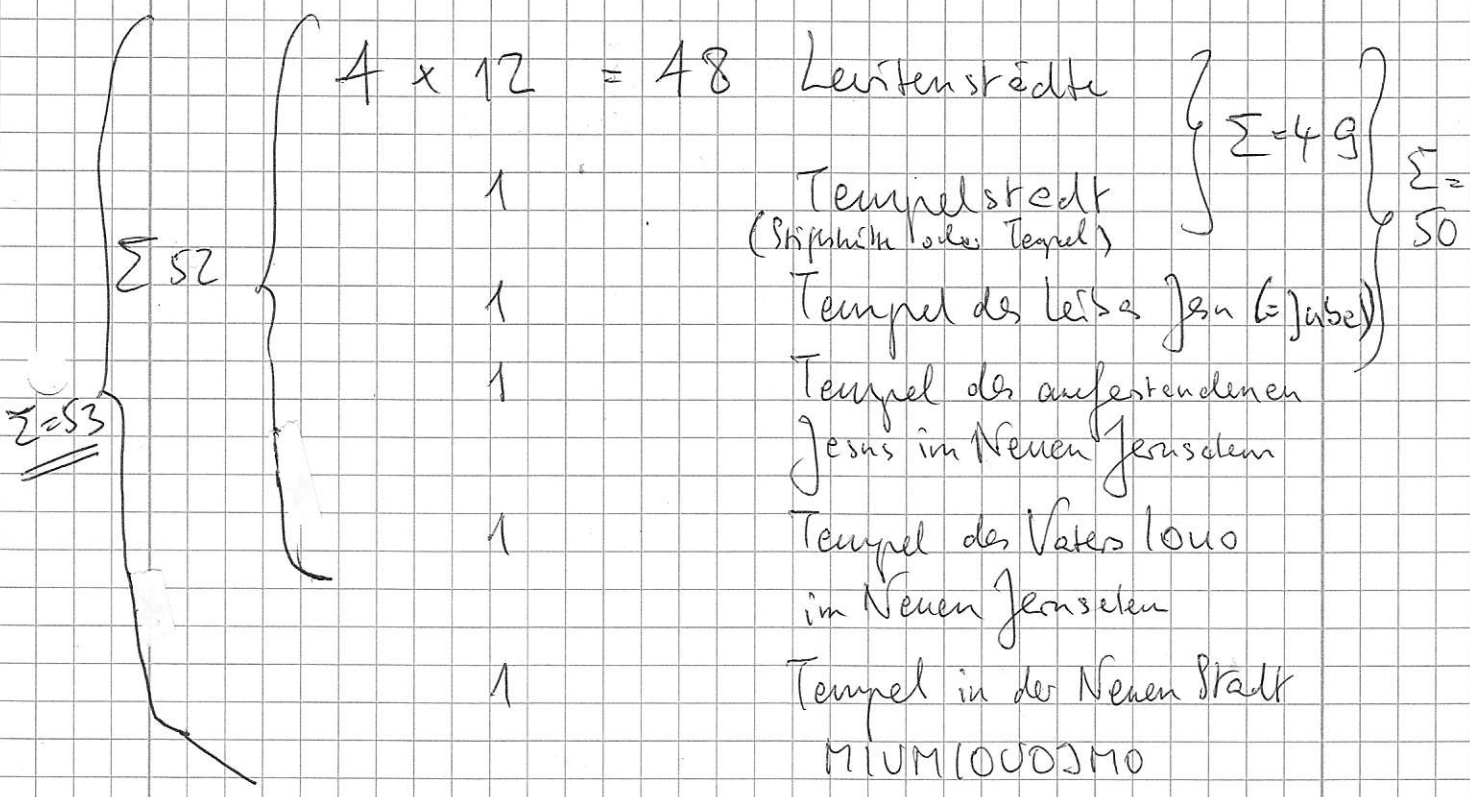 4 x 12 = 48 Levitenstädte
Σ=49
Σ=
50
1 Tempelstadt
(Stiftshütte oder Tempel)
Σ 52
1 Tempel des Leibes Jesu (=Jubel)
1 Tempel des auferstandenen
Jesus im Neuen Jerusalem
Σ=53
1 Tempel des Vaters IOUO
im Neuen Jerusalem
1 Tempel in der Neuen Stadt